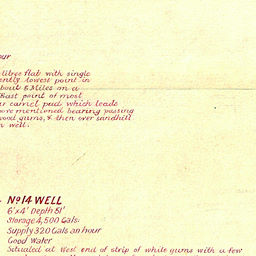 our
litree flat with single
ently lowest point in
bout 5 Miles on a
East point of most
camel pad which leads
ove mentioned bearing passing
wood gums, & then over sandhill
n well.
No 14 WELL
6'x4' Depth 51'
Storage 4,500 Gals.
Supply 320 Gals an hour
Good Water
Situated at West end of strip of white gums with a few